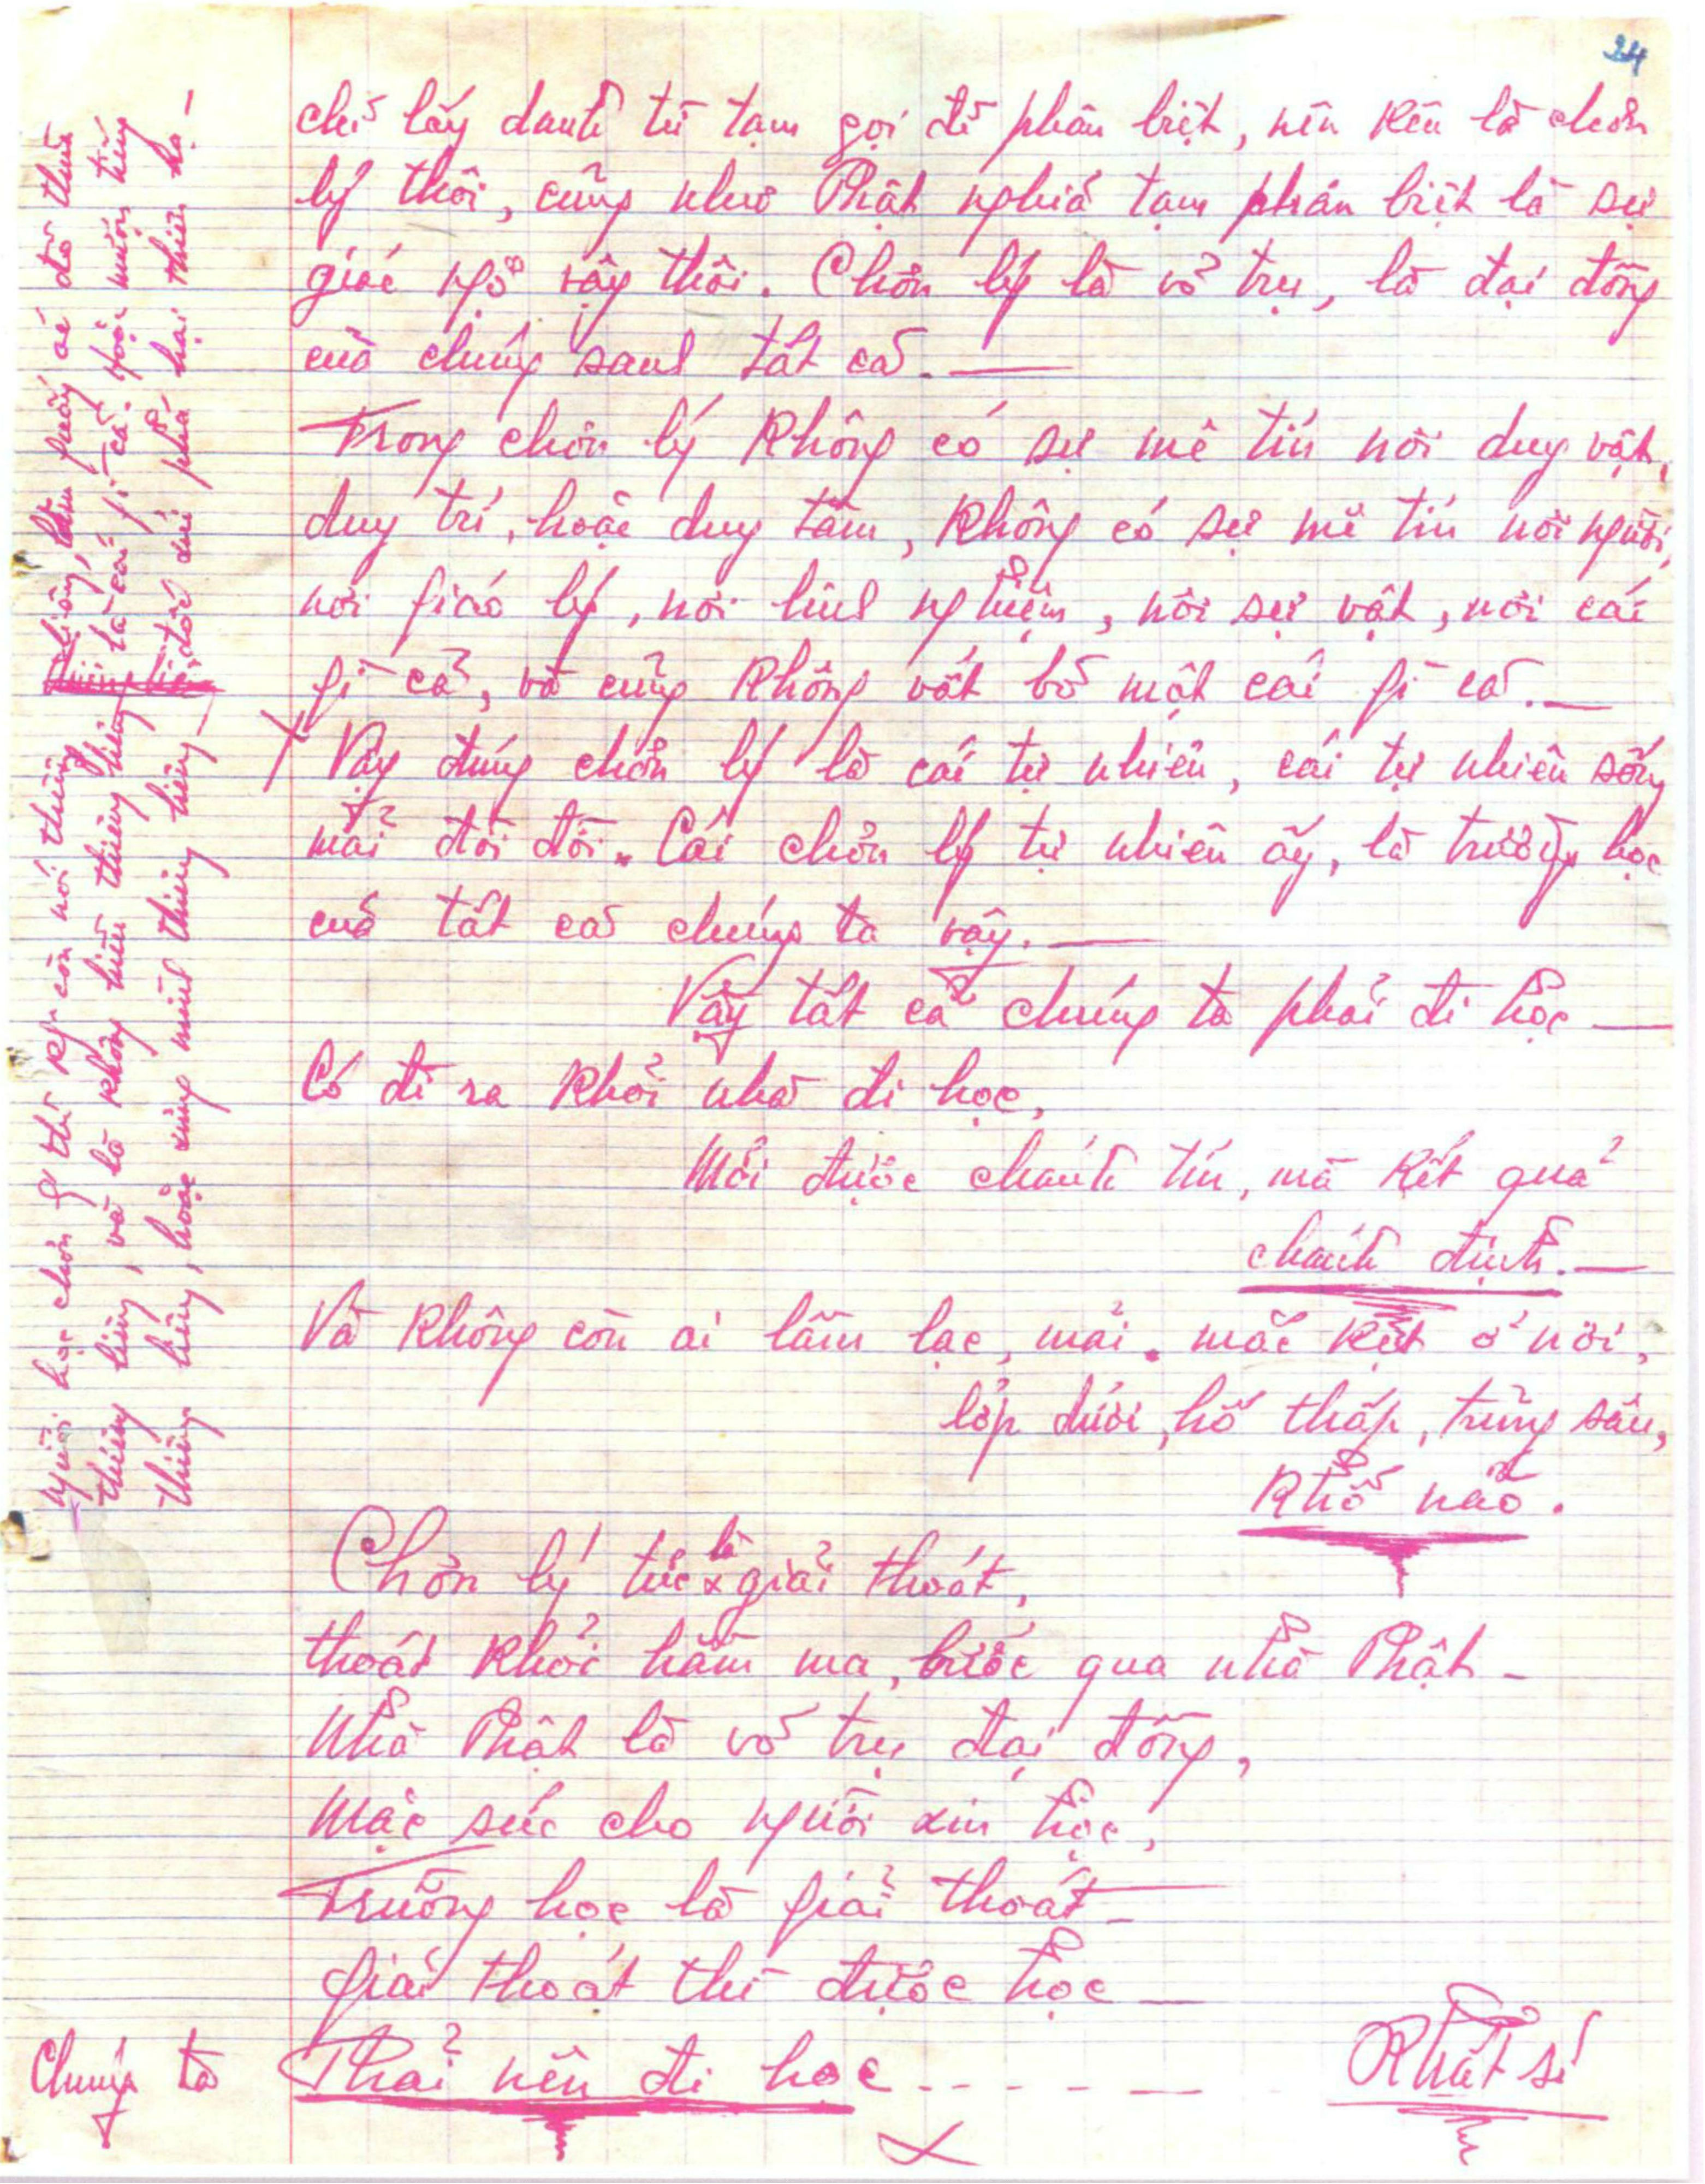 24
chỉ lấy danh từ tạm gọi để phân biệt, nên kêu là chơn
lý thôi, cũng như Phật nghĩa tạm phân biệt là sự
giác ngộ vậy thôi. Chơn lý là võ trụ, là đại đồng
của chúng sanh tất cả.—
Trong chơn lý không có sự mê tín nơi duy vật,
duy trí, hoặc duy tâm, không có sự mê tín nơi người,
nơi giáo lý, nơi linh nghiệm, nơi sự vật, nơi cái
gì cả, và cũng không vất bỏ một cái gì cả.—
Vậy đúng chơn lý là cái tự nhiên, cái tự nhiên sống
mãi đời đời. Cái chơn lý tự nhiên ấy, là trường học
của tất cả chúng ta vậy.—
Vậy tất cả chúng ta phải đi học—
Có đi ra khỏi nhà đi học,
Mới được chánh tín, mà kết quả
chánh định.—
Và không còn ai lầm lạc, mãi mắc kẹt ở nơi,
lớp dưới, hố thấp, trũng sâu,
khổ não.
Chơn lý tức là giải thoát,
thoát khỏi hầm ma, bước qua nhà Phật -
Nhà Phật là võ trụ đại đồng,
Mặc sức cho người xin học,
Trường học là giải thoát -
giải thoát thì được học—
Chúng ta Phải nên đi học - - - - -
Khất sĩ
người học chơn lý thì không còn nói thiêng
liêng, làm quấy ác đổ thừa
thiêng liêng, và là không hiểu thiêng liêng là cái gì cả. hoặc mượn tiếng
thiêng liêng, hoặc xưng mình thiêng liêng dối phá hại thiên hạ -